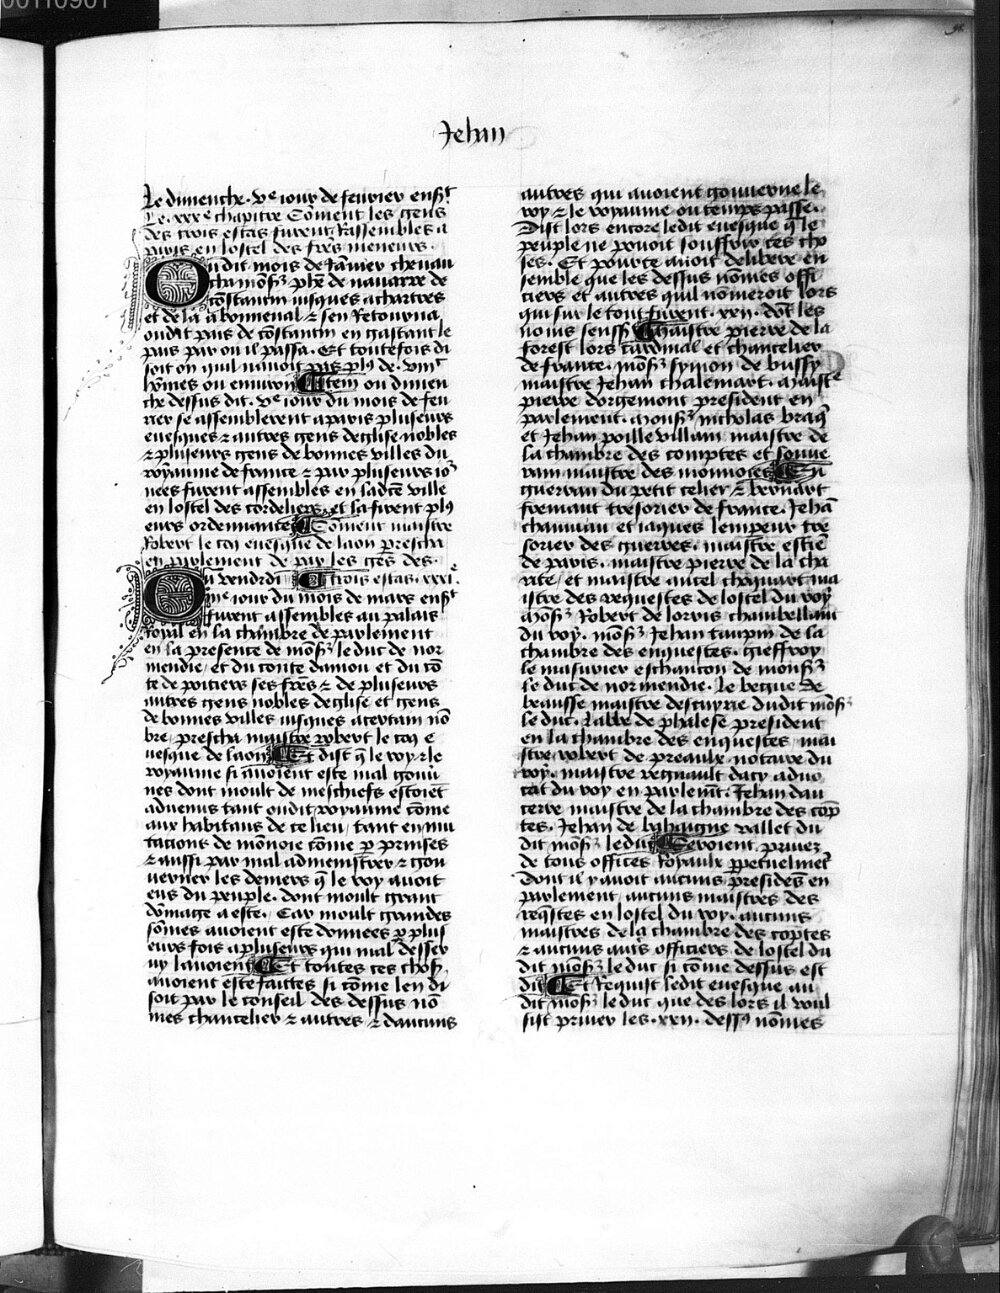 00110901
Jehan
Le dimenche .ve iour de feurier ensst
Le .xxxe chapitre Coment les gens
des trois estas furent Rassembles a
paris en lostel des frēs meneurs .
Ou dit mois de Iāuier cheuau
cha mōsr phē de nauarre de
cōstantin iusques a chartres
et de la a bonneual et sen Retourna
oudit pais de cōstantin en gastant le
pais par ou il passa. Et toutefois di
soit on quil nauoit pas plus de .viiic
hōmes ou enuiron Item ou dimen
che dessus dit .ve iour du mois de feu
rier se assemblerent a paris pluseurs
euesques et autres gens deglise nobles
et pluseurs gens de bonnes villes du
royaume de france et par pluseurs io
nees furent assembles en ladcē ville
en lostel des cordeliers, et la firent plus
eurs ordenances Coment maistre
Robert le coq euesque de laon prescha
en parlement de par les gēs des
Ou vendrdi trois estas .xxxi.
me iour du mois de mars ensst
furent assembles au palais
royal en la chambre de parlement
en la presence de mōsr le duc de nor
mendie, et du conte daniou et du cō
te de poitiers ses frēs et de pluseurs
autres gens nobles deglise et gens
de bonnes villes iusques a certain nō
bre, prescha maistre robert le coq e
uesque de laon Et dist q̄ le roy et le
royaume si auoient este mal gouū
nes dont moult de meschiefs estoiēt
aduenus tant oudit royaume cōme
aux habitans de ce lieu, tant en mu
tacions de monoie cōme p prinses
et aussi par mal administrer et gou
uerner les deniers q̄ le roy auoit
eus du peuple. dont moult grant
dōmage a este. Car moult grandes
sōmes auoient este donnees p plus
eurs fois a pluseurs qui mal desser
uy lauoient Et toutes ces chosz
auoient este faictes si cōme len di
soit par le conseil des dessus nō
mes chancelier et autres et daucuns
autres qui auoient gouuerne le
roy et le royaume ou temps passe.
Dist lors encore ledit euesque q̄ le
peuple ne pouoit souffrir ces cho
ses. Et pource auoit delibere en
semble que les dessus nōmes offi
ciers et autres quil nōmeroit lors
qui sur le tout furent .xxii. dōt les
noms sensst Maistre pierre de la
forest lors cardinal et chancelier
de france. mōsr symon de bussy
maistre Jehan chalemart. Maistre
pierre dorgemont president en
parlement. Monsr nicholas braq̄
et Jehan poilleuillain maistre de
la chambre des comptes et souue
rain maistre des monnoies En
guerran du petit celier et bernart
fremant tresorier de france. Jehā
chauuiau et iaques lempeur tre
sorier des guerres. maistre estiē
de paris. maistre pierre de la cha
rite, et maistre ancel choquart ma
istre des requestes de lostel du roy
Mōsr Robert de lorris chambellain
du roy. mōsr Jehan taupin de la
chambre des enquestes. gieffroy
le masurier eschancon de monsr
le duc de normendie. Le begue de
beausse maistre descuyrie dudit mōsr
le duc. Labbe de phalese president
en la chambre des enquestes. mai
stre robert de preaulx notaire du
roy. maistre regnault dacy aduo
cat du roy en parlemt. Jehan dau
cerre maistre de la chambre des cōp
tes. Jehan de bahaigne vallet du
dit mōsr le duc Seroient priuez
de tous offices royaulx ppetuelmēt
dont il y auoit aucuns presidēs en
parlement aucuns maistres des
reqstes en lostel du roy. aucuns
maistres de la chambre des cōptes
et aucuns autres officiers de lostel du
dit mōsr le duc si cōme dessus est
dit Et Requist ledit euesque au
dit mōsr le duc que des lors il voul
sist priuer les .xxii. dessus nōmes